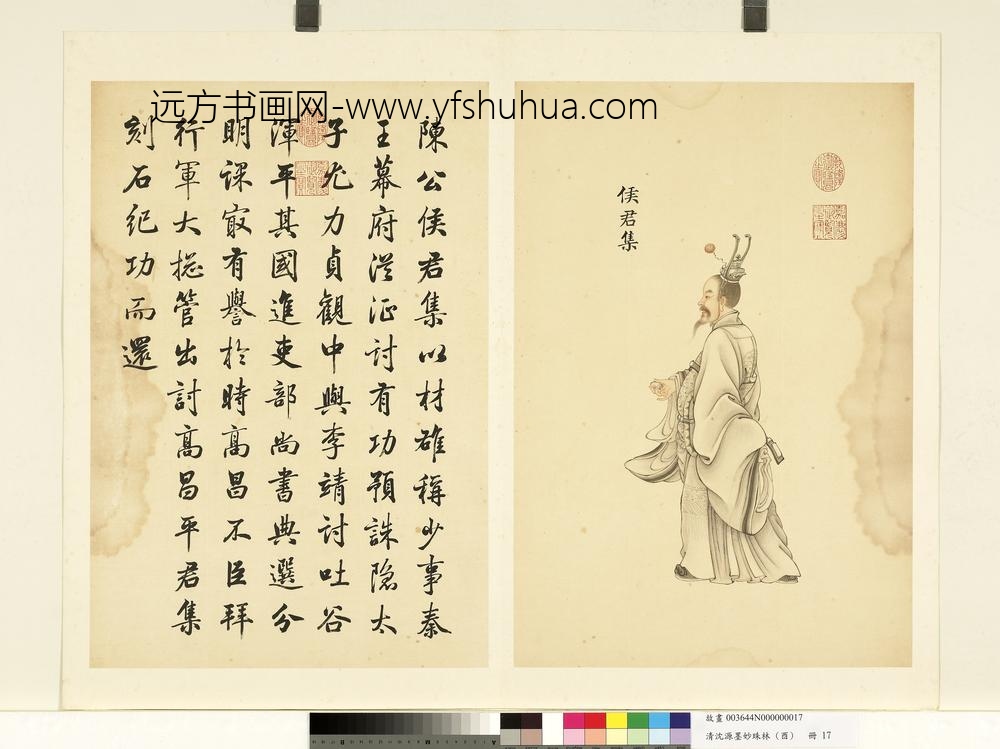 远方书画网-www.yfshuhua.com
侯君集
陳公侯君集以材雄稱少事秦
王幕府從征討有功預誅隐太
子尤力貞觀中與李靖討吐谷
渾平其國進吏部尚書典選分
明課㝡有譽於時高昌不臣拜
行軍大揔管出討高昌平君集
刻石紀功而還
故畫 003644N000000017
清沈源墨妙珠林（酉） 冊 17